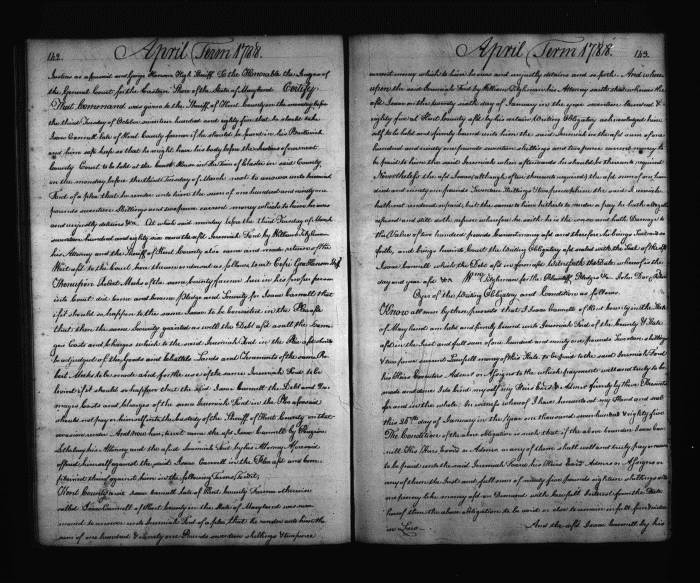 142. April Term 1788.
Justices as aforesaid and George Hanson High Sheriff To the Honorable the Judges of
the General Court for the Eastern Shore of the State of Maryland Certify
That Command was given to the Sheriff of Kent County on the monday before
the third Tuesday of October seventeen hundred and eighty five that he should take
Isaac Cannell late of Kent County farmer if he should be found in his Bailiwick
and him safe keep so that he might have his body before the Justices of
County Court to be held at the Court House in the Town of Chester in said County
on the monday before the third Tuesday of March next to answer unto Jeremiah
Ford of a plea that he render unto him the sum of one hundred and ninety one
pounds seventeen shillings and two pence current money which to him he owes
and unjustly detains &ca At which said monday before the third Tuesday of March
seventeen hundred and eighty six came the afsd Jeremiah Ford by William Tilghman
his Attorney and the Sheriff of Kent County also came and made return of the
Writ afsd to the Court here thereon indorsed as follows to wit Cepi Geo Hanson Shff
Whereupon Robert Meeks of the same County farmer here in his proper person
into Court did come and become Pledge and Security for Isaac Cannell that
if it should so happen to the same Isaac to be convicted in the Plea afsd
that then the same Security granted as well the Debt afsd as all the Dama
ges Costs and Charges which to the said Jeremiah Ford in the Plea afsd should
be adjudged of the Goods and Chattels Lands and Tenements of the same Ro
bert Meeks to be made and for the use of the same Jeremiah Ford to be
levied if it should so happen that the said Isaac Cannell the Debt and Da
mages Costs and Charges of the same Jeremiah Ford in the Plea aforesaid
should not pay or himself into the Custody of the Sheriff of Kent County on that
occasion render And now here to wit came the afsd Isaac Cannell by
his Attorney and the afsd Jeremiah Ford by his Attorney Aforesaid
offered himself against the said Isaac Cannell in the Plea afsd and com
plained thereof against him in the following Terms to wit;
Kent County and Isaac Cannell late of Kent County Farmer otherwise
called Isaac Cannell of Kent County in the State of Maryland was sum
moned to answer unto Jeremiah Ford of a plea that he render unto him the
sum of one hundred & Ninety one Pounds seventeen shillings & two pence
April Term 1788. 143.
current money which to him he owes and unjustly detains and so forth. And where
upon the said Jeremiah Ford by William Tilghman his Attorney saith that whereas the
afsd Isaac on the twenty eighth day of January in the year seventeen Hundred &
eighty five at Kent County afsd by his certain Writing Obligatory acknowledged him
self to be held and firmly bound unto him the said Jeremiah in the afsd sum of one
hundred and ninety one pounds seventeen shillings and two pence current money to
be paid to him the said Jeremiah when afterwards he should be thereunto required
Nevertheless the afsd Isaac (although often thereunto required) the afsd sum of one hund
red and ninety one pounds Seventeen Shillings & two pence to him the said Jeremiah
hath not rendered or paid, but the same to him hitherto to render or pay he hath altogether
refused and still doth refuse wherefore he saith he is the worse and hath Damage to
the Value of two hundred pounds Current money afsd and therefore he brings Suit and so
forth, and brings here into Court the Writing Obligatory afsd sealed with the Seal of the afsd
Isaac Cannell which the Debt afsd in form afsd testifieth the Date whereof is the
day and year afsd &ca Wm Tilghman for the Plaintiff. Pledges &c John Doe & Rich Roe
Copy of the Writing Obligatory and Condition as follows
Know all men by these presents that I Isaac Cannell of Kent County in the State
of Maryland am held and firmly bound unto Jeremiah Ford of the County & State
afsd in the Just and full sum of one hundred and ninety one pounds Seventeen shillings
& two pence current Lawful money of this State to be paid to the said Jeremiah Ford
his Heirs Executors Admrs or Assigns to the which payment will and truly to be
made and done I do bind myself my Heirs Exrs & Admrs firmly by these Presents
for and in the whole. In witness whereof I have hereunto set my Hand and seal
this 28th day of January in the year one thousand seven hundred & eighty five
The Condition of the above Obligation is such that if the above bounden Isaac Can
nell His Heirs Exrs or Admrs or any of them shall well and truly pay or cause
to be paid unto the said Jeremiah Ford his Heirs Exrs Admrs or Assigns or
any of them the Just and full sum of ninety five pounds eighteen shillings &
seven pence like money afsd on Demand with Lawful Interest from the Date
hereof then the above obligation to be void or else to remain in full force & virtue
in Law.
And the afsd Isaac Cannell by his